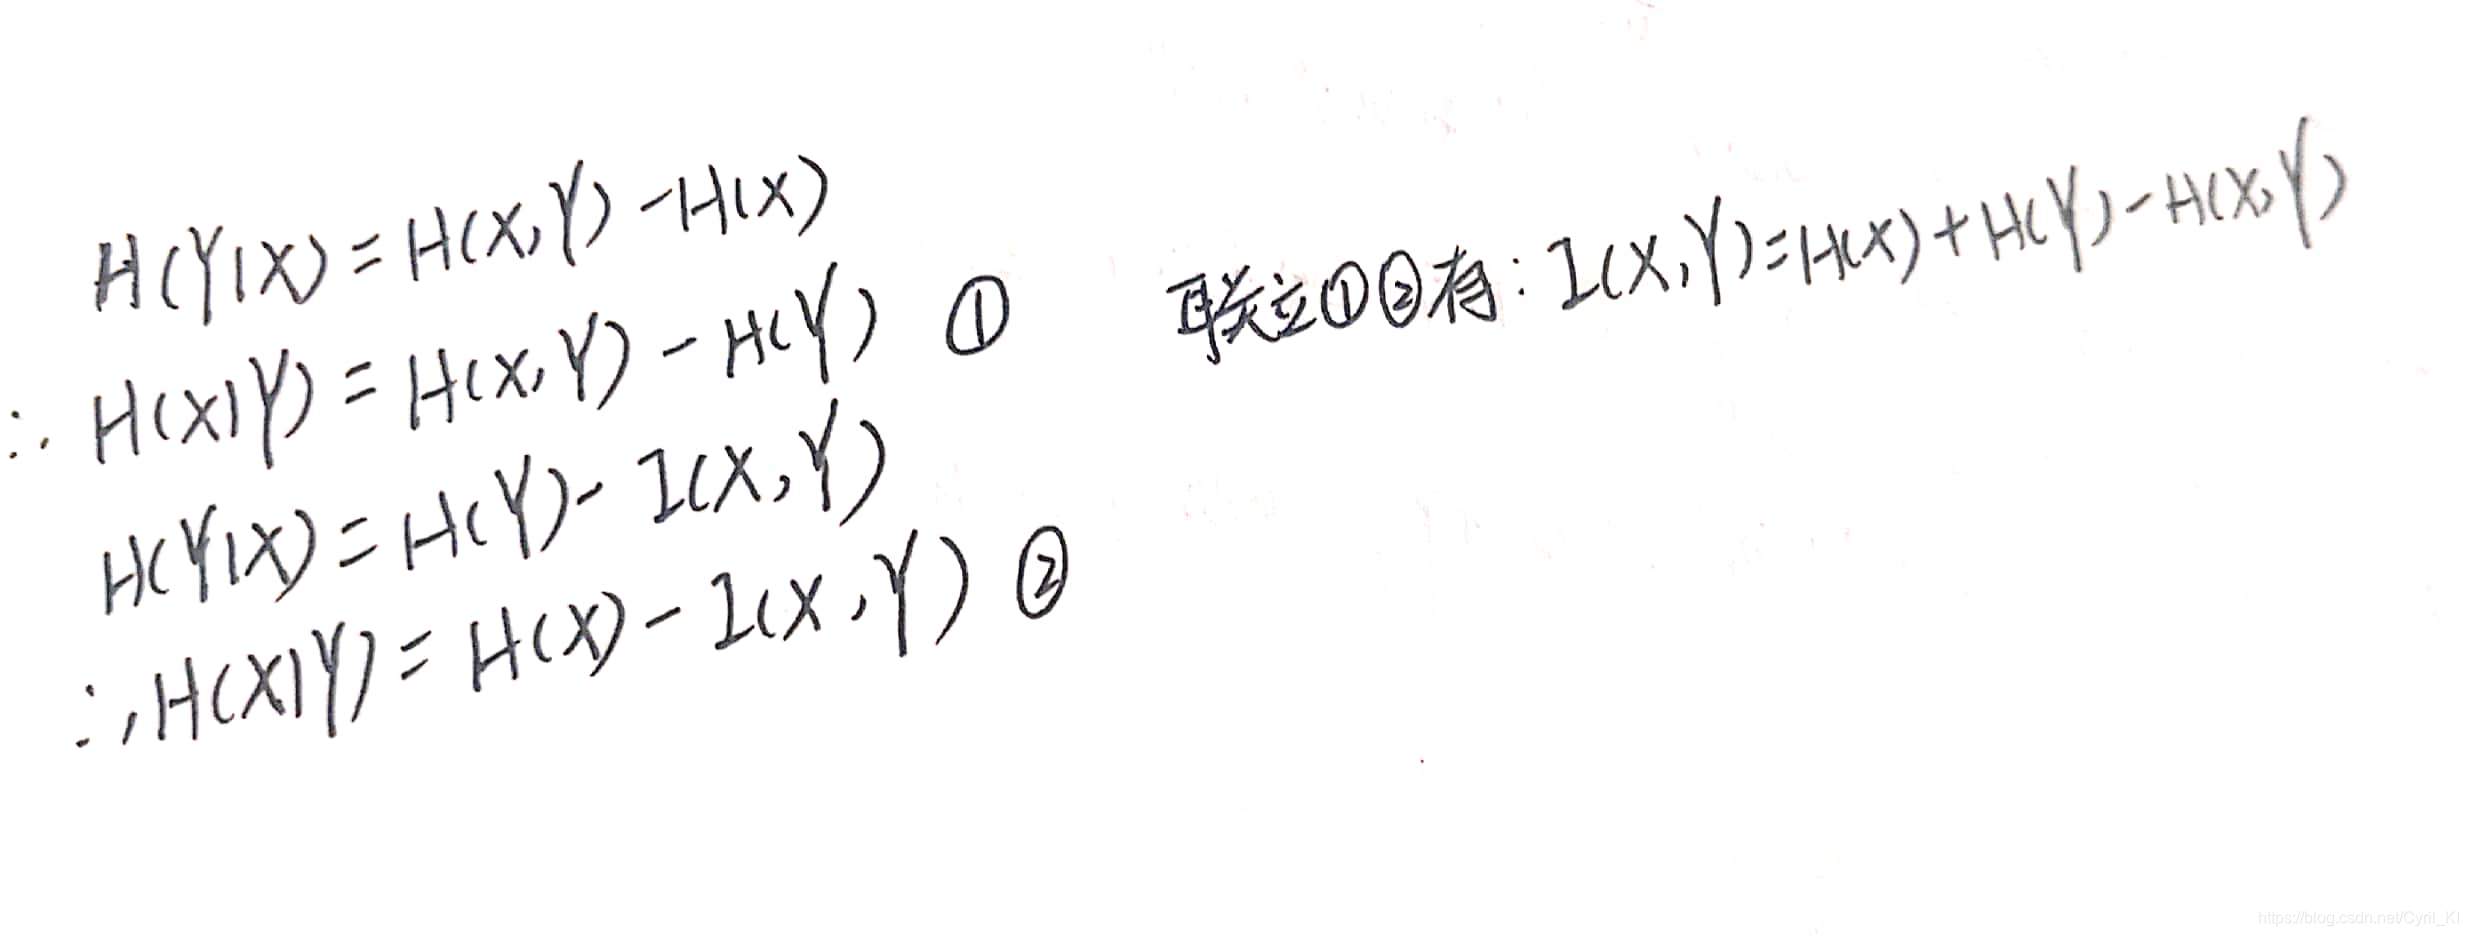 H(Y|X)=H(X,Y)-H(X)
∴ H(X|Y)=H(X,Y)-H(Y) ①
H(Y|X)=H(Y)-I(X,Y)
∴, H(X|Y)=H(X)-I(X,Y) ②
联立①②有: I(X,Y)=H(X)+H(Y)-H(X,Y)
https://blog.csdn.net/Cyril_KI